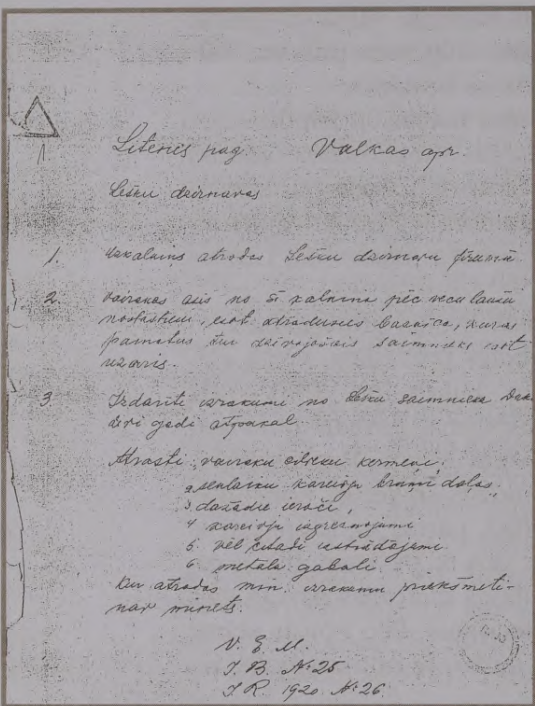 1
Litenes pag. Valkas apr.
Lešu dzirnavas
1. Uzkalniņš atrodas Lešu dzirnavu
2. Vairākas asis no šī kalniņa pēc vecu laužu
nostāstiem, esot atradusies baznīca, kuras
pamatus tur dzīvojošais saimnieks esot
uzaris.
3. Izdarīti izrakumi no saimnieka
gadi atpakaļ
Atrasti: vairāku cilvēku ķermeņi,
2. senlaiku kareivju bruņu daļas,
3. dažādie ieroči,
4 kareivju
5. vēl citādi izstrādājumi
6. metala gabali
Kur atrodas min. izrakumu priekšmeti -
nav minēts.
V. E. M.
J. B. № 25
J. R. 1920 № 26